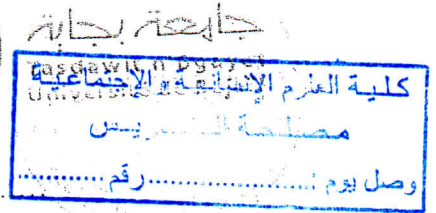 جامعة بجاية
Tasdawit n Bgayet
Université
كلية العلوم الإنسانية و الإجتماعية
مصلحة التدريس
وصل يوم :....................رقم ............